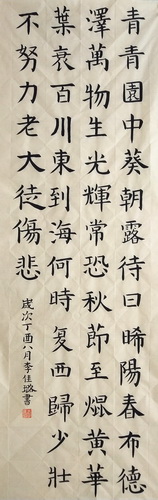 青青園中葵朝露待日晞陽春布德
澤萬物生光輝常恐秋節至焜黃華
葉衰百川東到海何時复西歸少壯
不努力老大徒傷悲
歲次丁酉八月李佳璐書